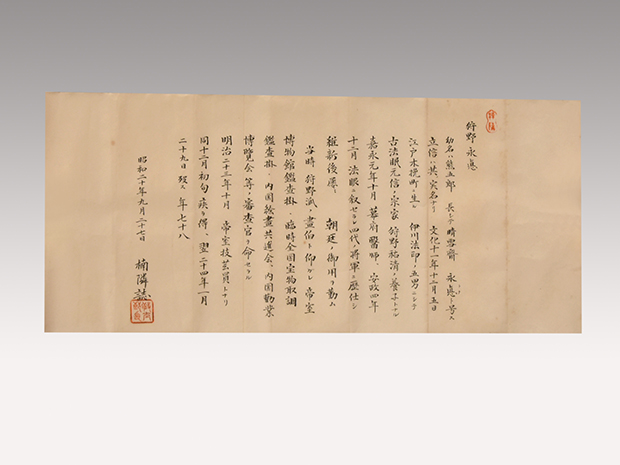 狩野永悳
幼名ハ熊五郎 長シテ晴雪齋 永悳ト号ス
立信ハ其実名ナリ 文化十一年十二月五日
江戸木挽町ニ生レ 伊川法印ノ五男ニシテ
古法眼元信ノ宗家狩野祐清ノ養子トナル
嘉永元年十月 幕府醫師 安政四年
十二月 法眼ニ叙セラレ四代ノ将軍ニ歴仕シ
維新後ハ 朝廷ノ御用ヲ勤ム
当時狩野派ノ畫伯ト仰ガレ 帝室
博物館鑑査掛、臨時全国宝物取調
鑑査掛、内国絵畫共進会、内国勧業
博覧会等ノ審査官ヲ命セラル
明治二十三年十月 帝室技芸員トナリ
同十二月初旬疾ヲ得、翌二十四年一月
二十九日歿ス 年七十八
昭和二十年九月二十七日
楠隣